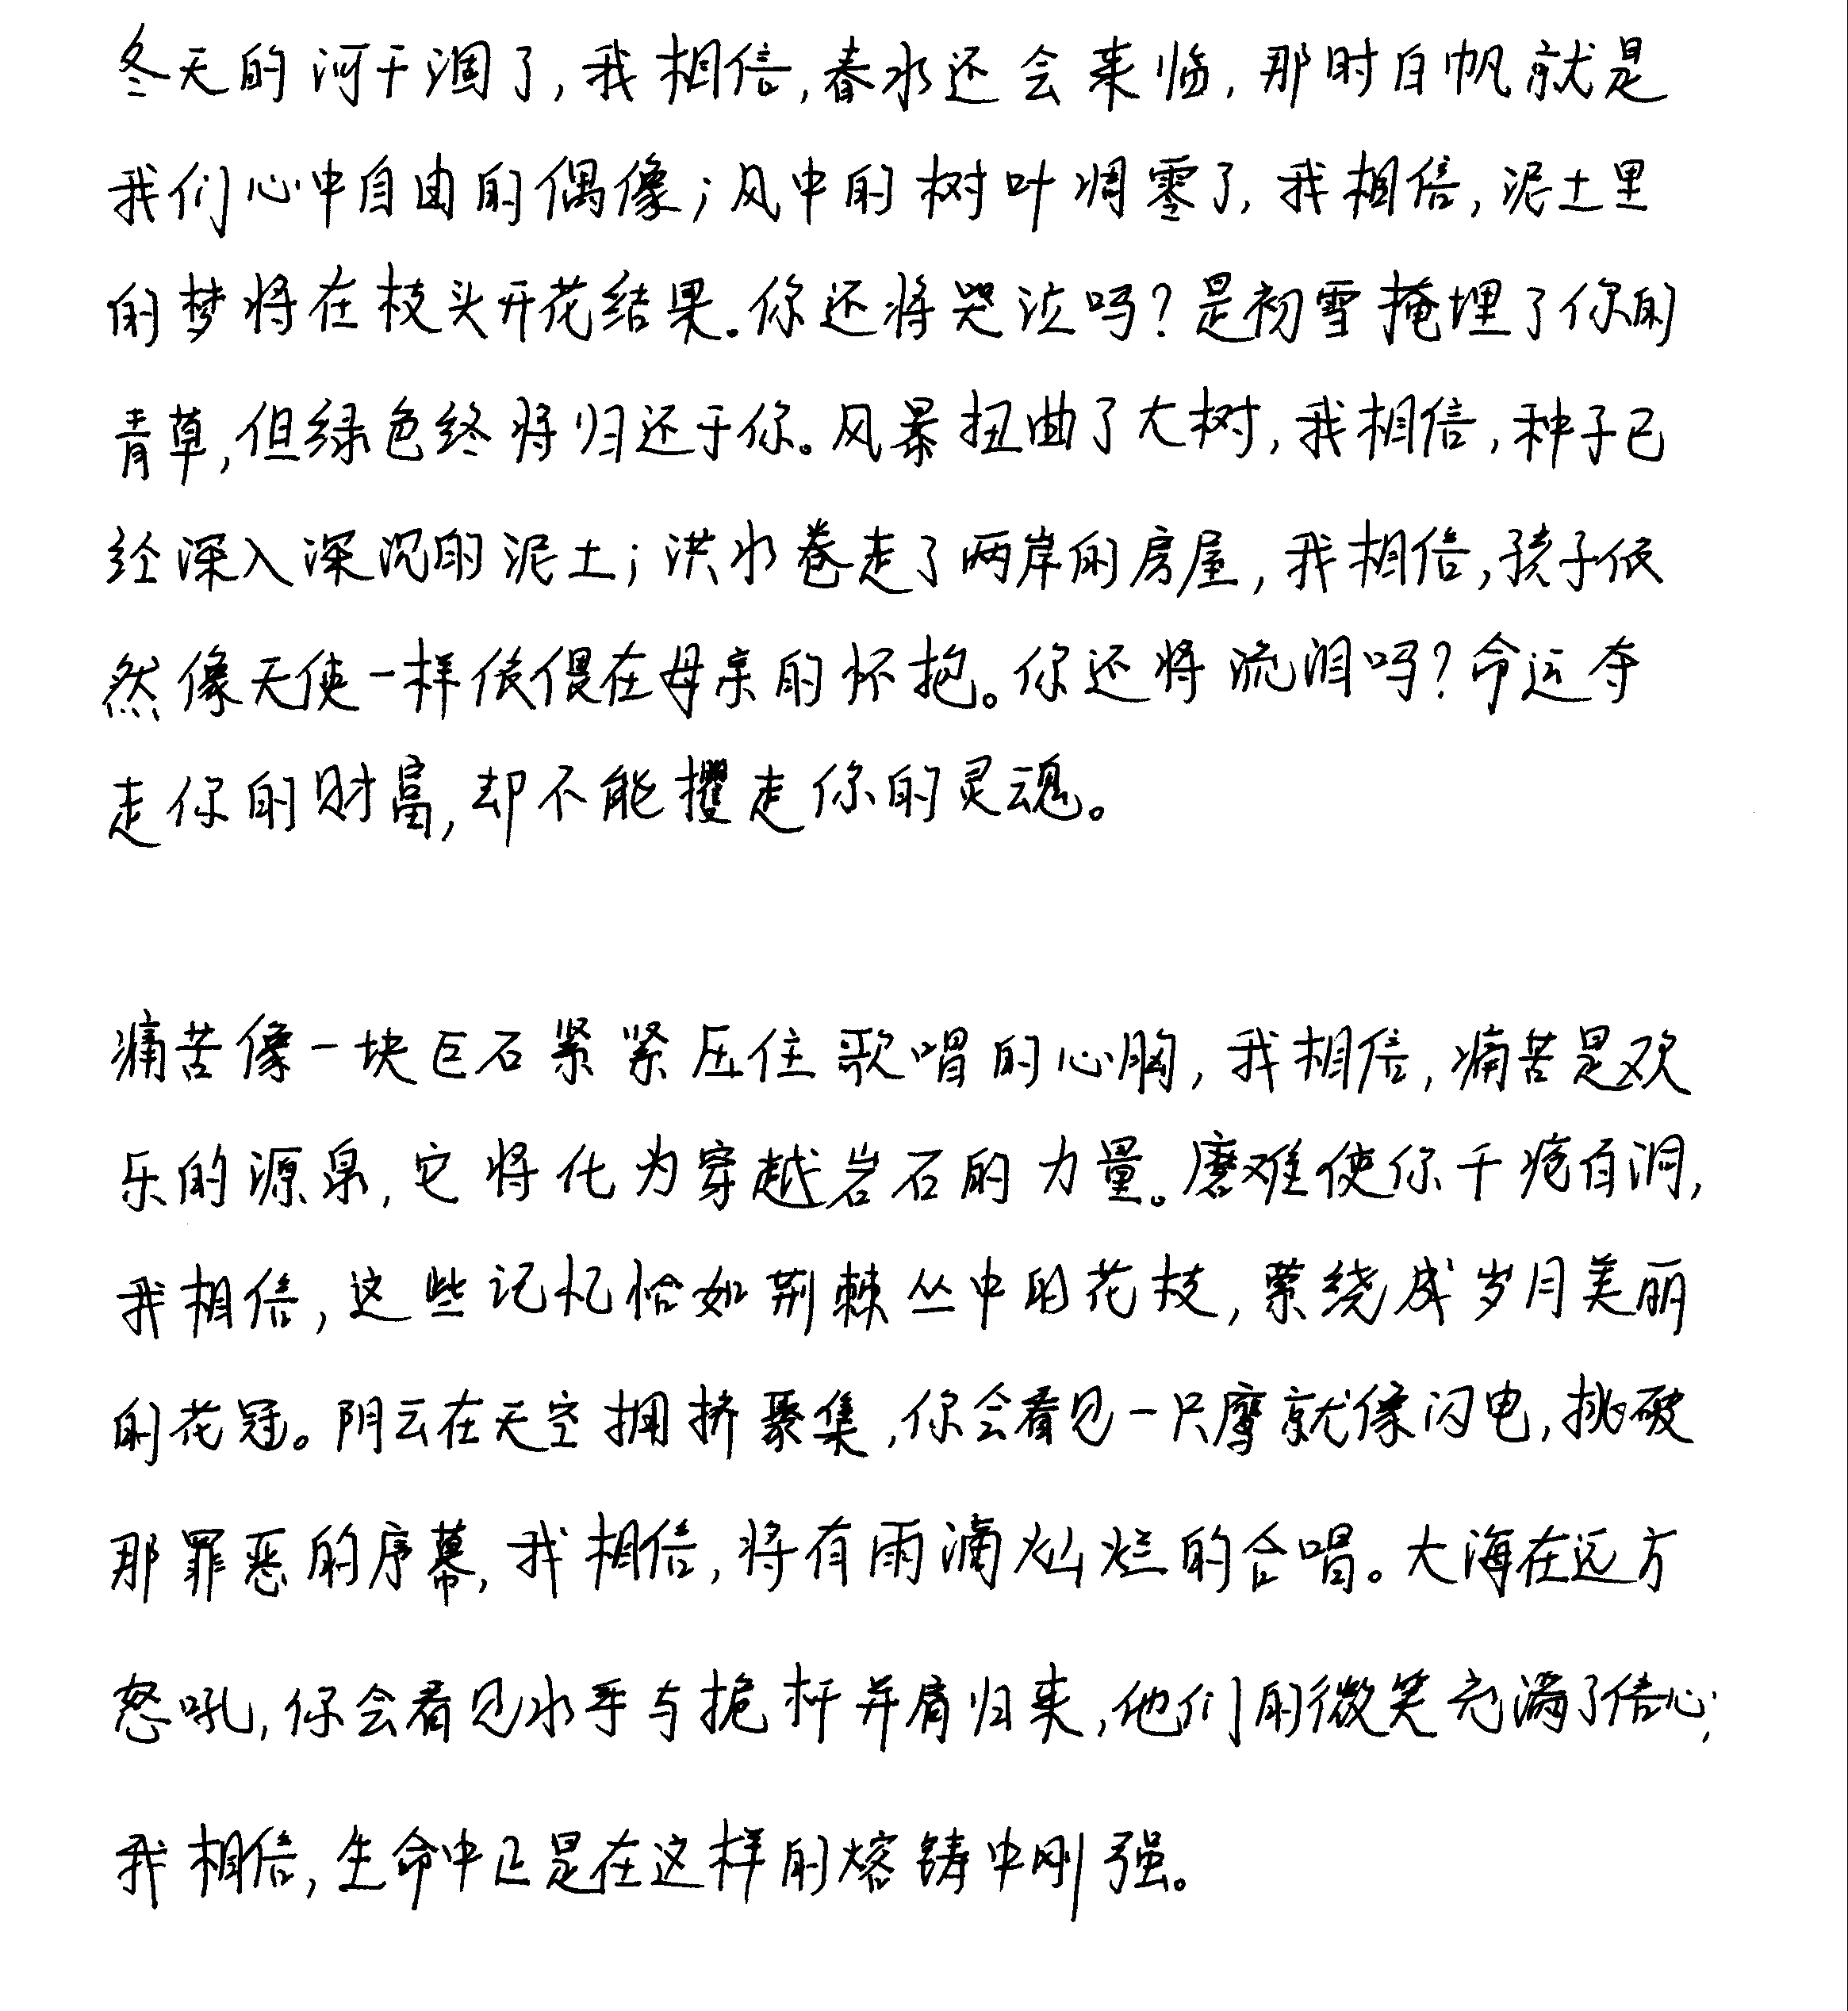 冬天的河干涸了,我相信,春水还会来临,那时白帆就是
我们心中自由的偶像;风中的树叶凋零了,我相信,泥土里
的梦将在枝头开花结果。你还将哭泣吗?是初雪掩埋了你的
青草,但绿色终将归还于你。风暴扭曲了大树,我相信,种子已
经深入深沉的泥土;洪水卷走了两岸的房屋,我相信,孩子依
然像天使一样依偎在母亲的怀抱。你还将流泪吗?命运夺
走你的财富,却不能攫走你的灵魂。
痛苦像一块巨石紧紧压住歌唱的心胸,我相信,痛苦是欢
乐的源泉,它将化为穿越岩石的力量。磨难使你千疮百洞,
我相信,这些记忆恰如荆棘丛中的花枝,萦绕成岁月美丽
的花冠。阴云在天空拥挤聚集,你会看见一只鹰就像闪电,挑破
那罪恶的序幕,我相信,将有雨滴灿烂的合唱。大海在远方
怒吼,你会看见水手与桅杆并肩归来,他们的微笑充满了信心;
我相信,生命中正是在这样的熔铸中刚强。